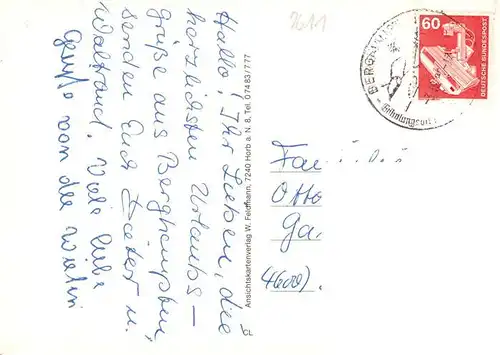 2611
Hallo! Ihr Lieben, die
herzlichsten Urlaubs-
grüße aus Berghaupten,
senden Euch Dieter u.
Waltraud. Viele liebe
Grüße von der Wirtin
Ansichtskartenverlag W. Feldmann, 7240 Horb a. N. 8, Tel. 07483/777
60
DEUTSCHE BUNDESPOST
Erholungsort
Fam
Otto
Ga
4600